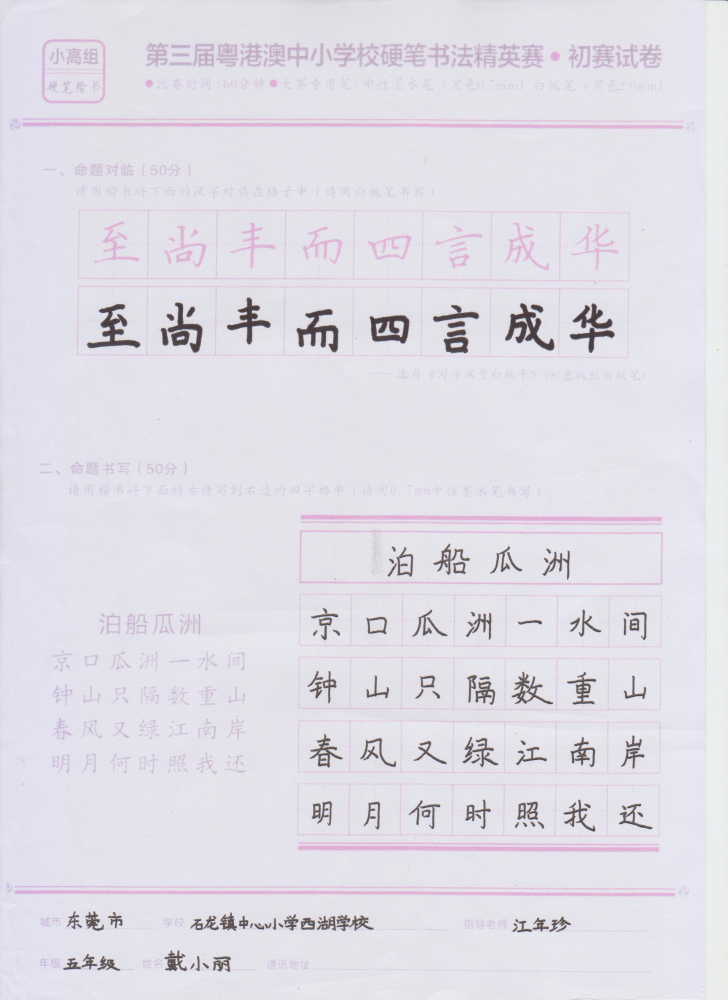 小高组
硬笔楷书
第三届粤港澳中小学校硬笔书法精英赛•初赛试卷
●比赛时间：60分钟●大赛专用笔：中性墨水笔（黑色0.7mm）白板笔（黑色2.0mm）
一、命题对临（50分）
请用楷书将下面的汉字对临在格子中（请用白板笔书写）。
至尚丰而四言成华
至尚丰而四言成华
——选自《写字课堂白板卡》（彩色板配白板笔）
二、命题书写（50分）
请用楷书将下面的古诗写到右边的田字格中（请用0.7mm中性墨水笔书写）。
泊船瓜洲
京口瓜洲一水间
钟山只隔数重山
春风又绿江南岸
明月何时照我还
泊船瓜洲
京口瓜洲一水间
钟山只隔数重山
春风又绿江南岸
明月何时照我还
城市 东莞市 学校 石龙镇中心小学西湖学校 指导老师 江年珍
年级 五年级 姓名 戴小丽 通讯地址